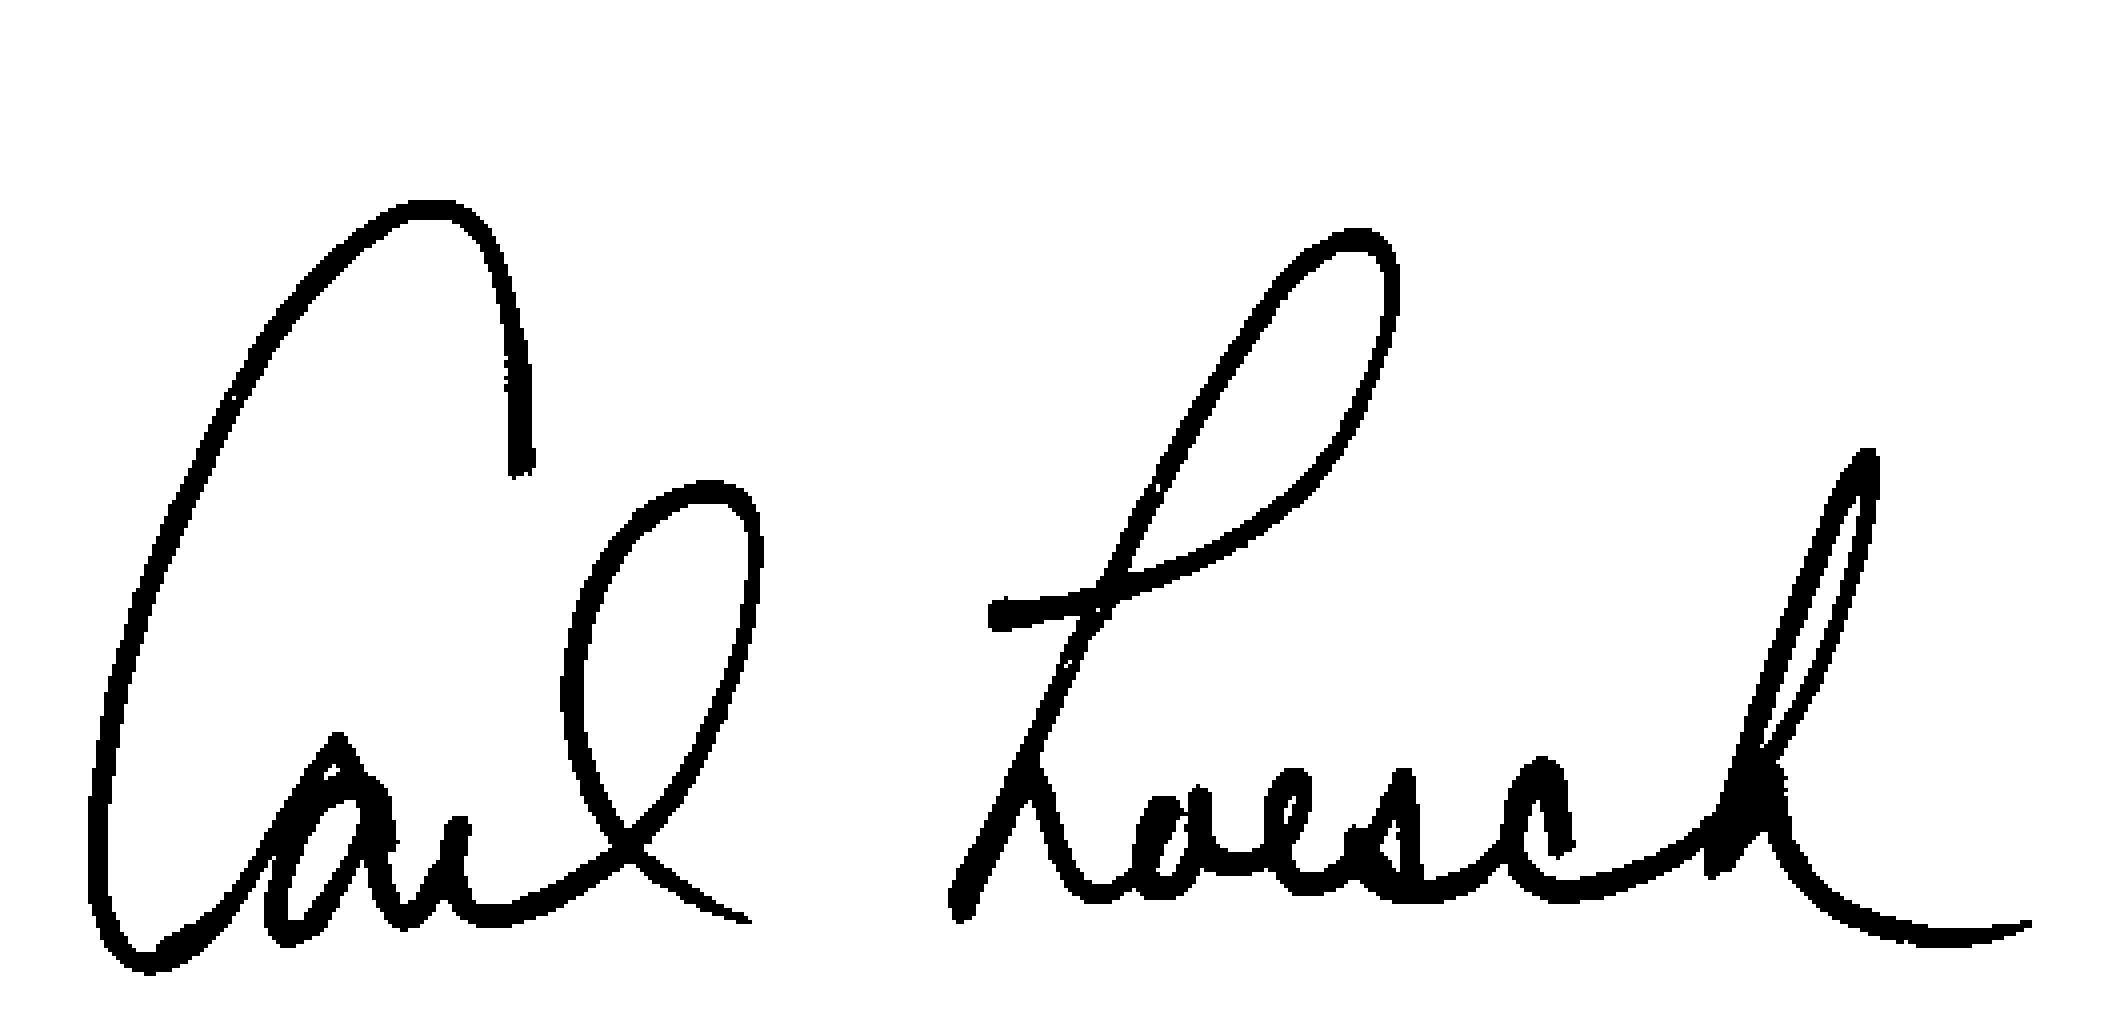 Carl Loesch